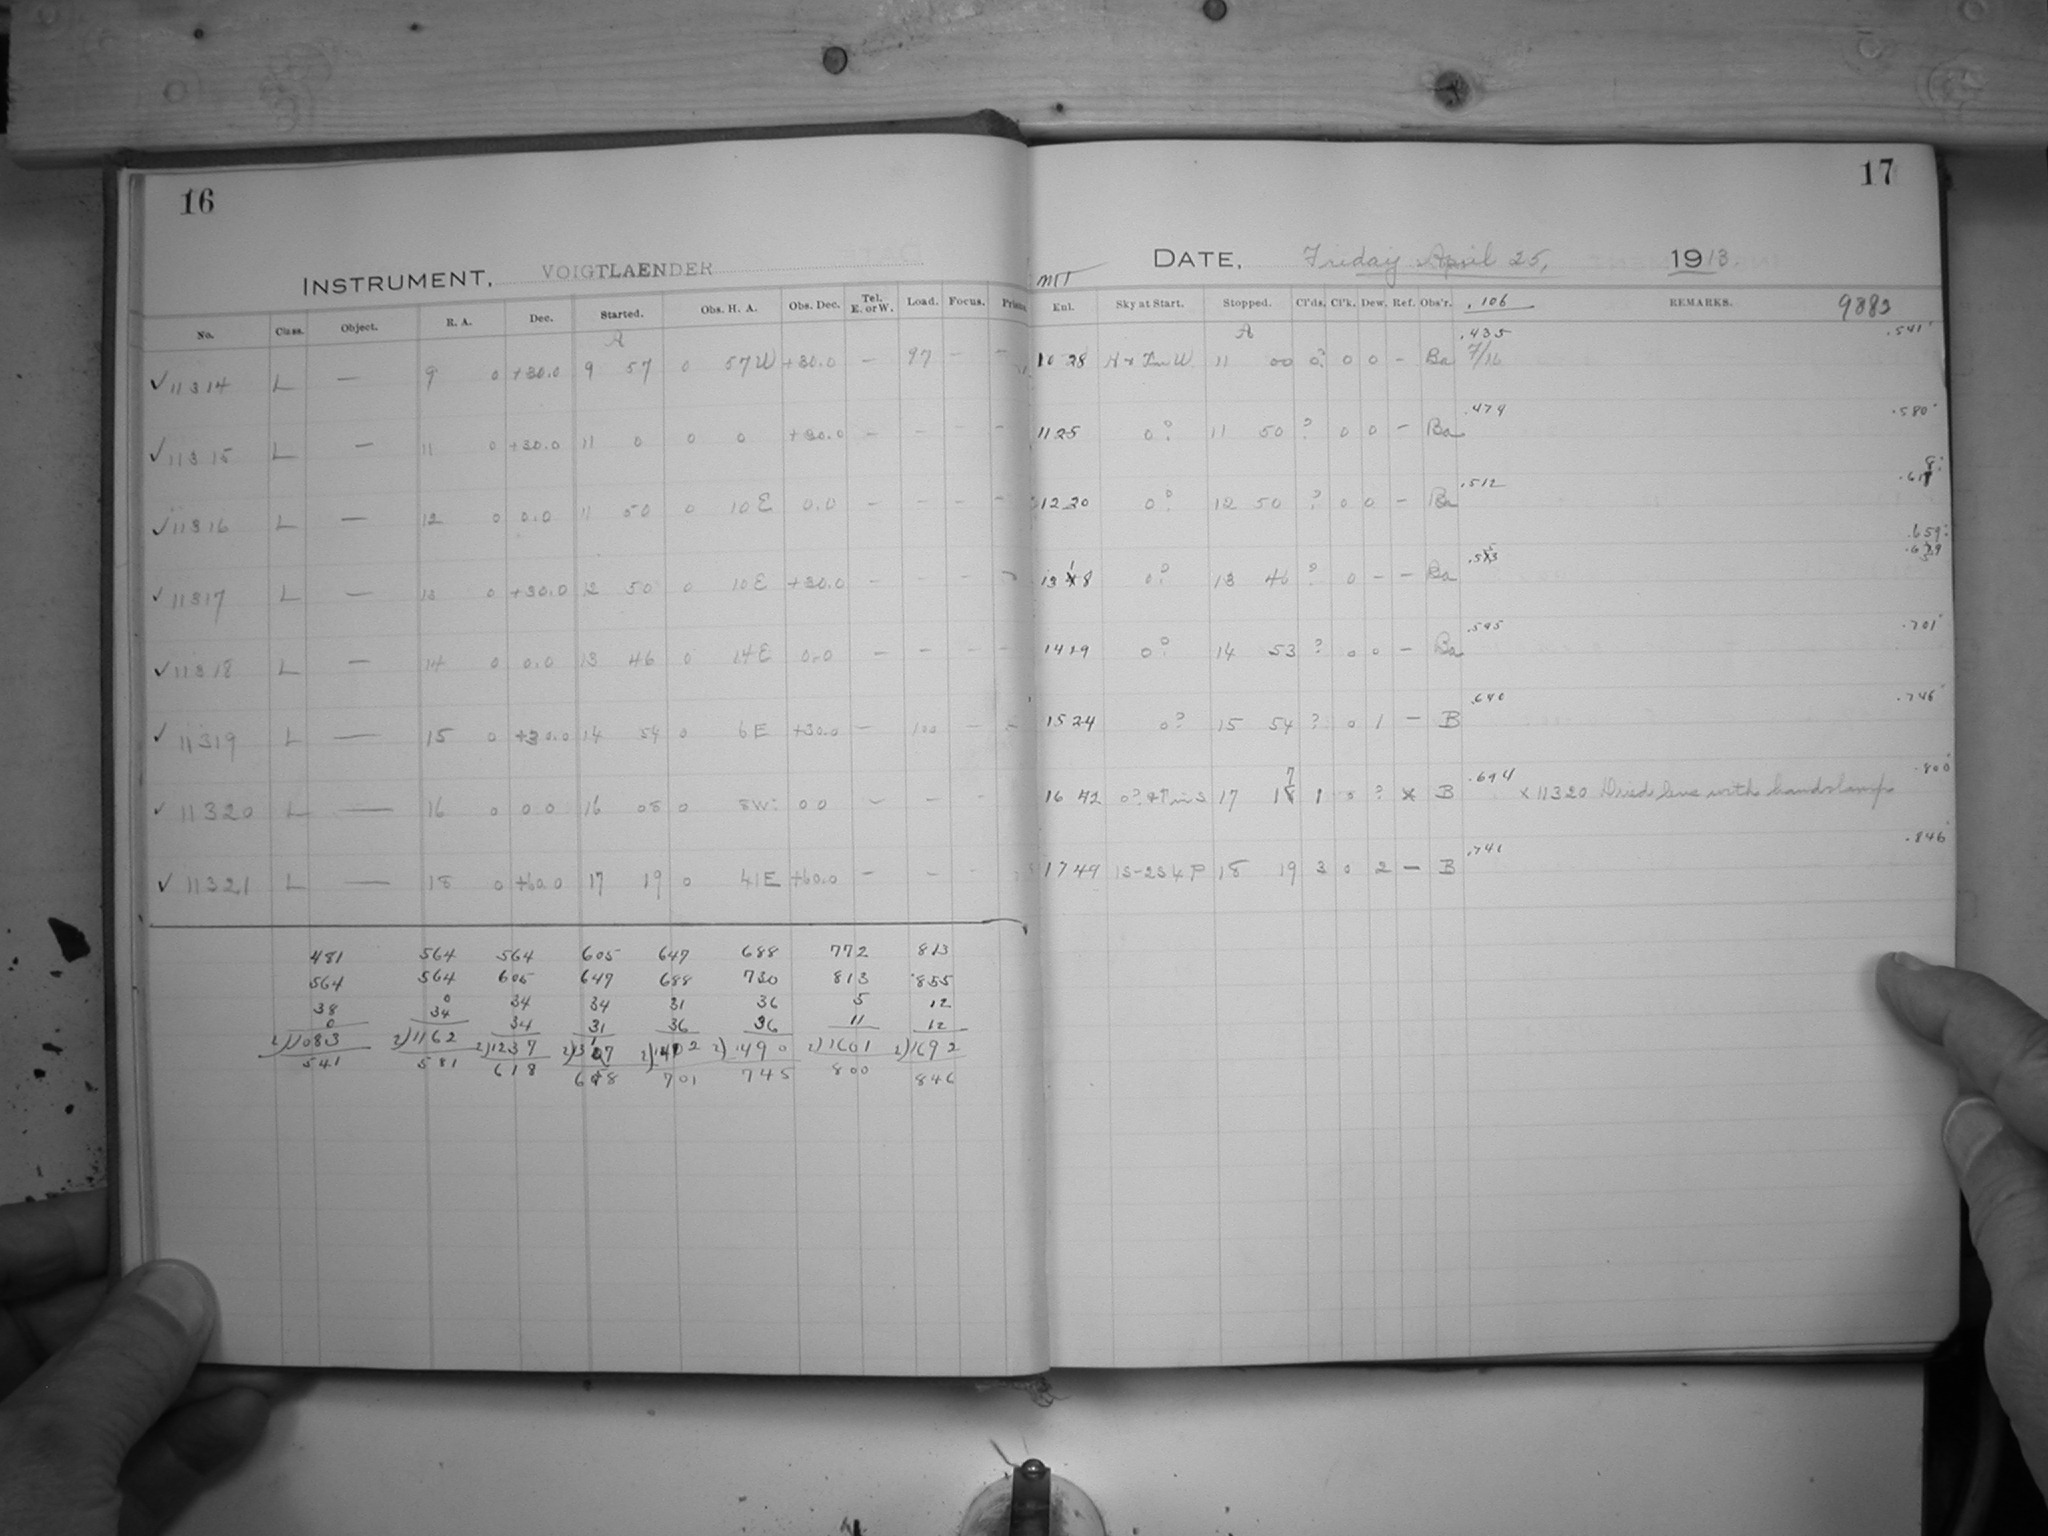 16
INSTRUMENT, VOIGTLAENDER
No. Class. Object. R. A. Dec. Started. Obs. H. A. Obs. Dec. Tel. E. or W. Load. Focus. Prism
A
✓11314 L — 9 0 +30.0 9 57 0 57W +30.0 — 97 — —
✓11315 L — 11 0 +30.0 11 0 0 0 +30.0 — — — —
✓11316 L — 12 0 0.0 11 50 0 10E 0.0 — — — —
✓11317 L — 13 0 +30.0 12 50 0 10E +30.0 — — — —
✓11318 L — 14 0 0.0 13 46 0 14E 0.0 — — — —
✓11319 L — 15 0 +30.0 14 54 0 6E +30.0 — 100 — —
✓11320 L — 16 0 0.0 16 08 0 8W: 0 0 — — —
✓11321 L — 18 0 +60.0 17 19 0 41E +60.0 — — —
481 564 564 605 647 688 772 813
564 564 605 647 688 730 813 855
38 0 34 34 31 36 5 12
0 34 34 31 36 36 11 12
2)1083 2)1162 2)1237 2) 2) 2)1490 2)1601 2)1692
541 581 618 701 745 800 846
17
DATE, Friday April 25, 1913.
MT
Enl. Sky at Start. Stopped. Cl'ds. Cl'k. Dew. Ref. Obs'r. .106 REMARKS. 9882
A .435 .541
10 28 11 00 0? 0 0 — Ba 7/16
.479 .580
11 25 0? 11 50 ? 0 0 — Ba
.512
12 20 0? 12 50 ? 0 0 — Ba
.659
13 18 0? 13 46 ? 0 — — Ba
.595 .701
14 19 0? 14 53 ? 0 0 — Ba
.640 .746
15 24 0? 15 54 ? 0 1 — B
.694 .800
16 42 17 17 1 0 ? x B x 11320 Dried lens with handslamp
.741 .846
17 49 1S-2S4P 18 19 3 0 2 — B